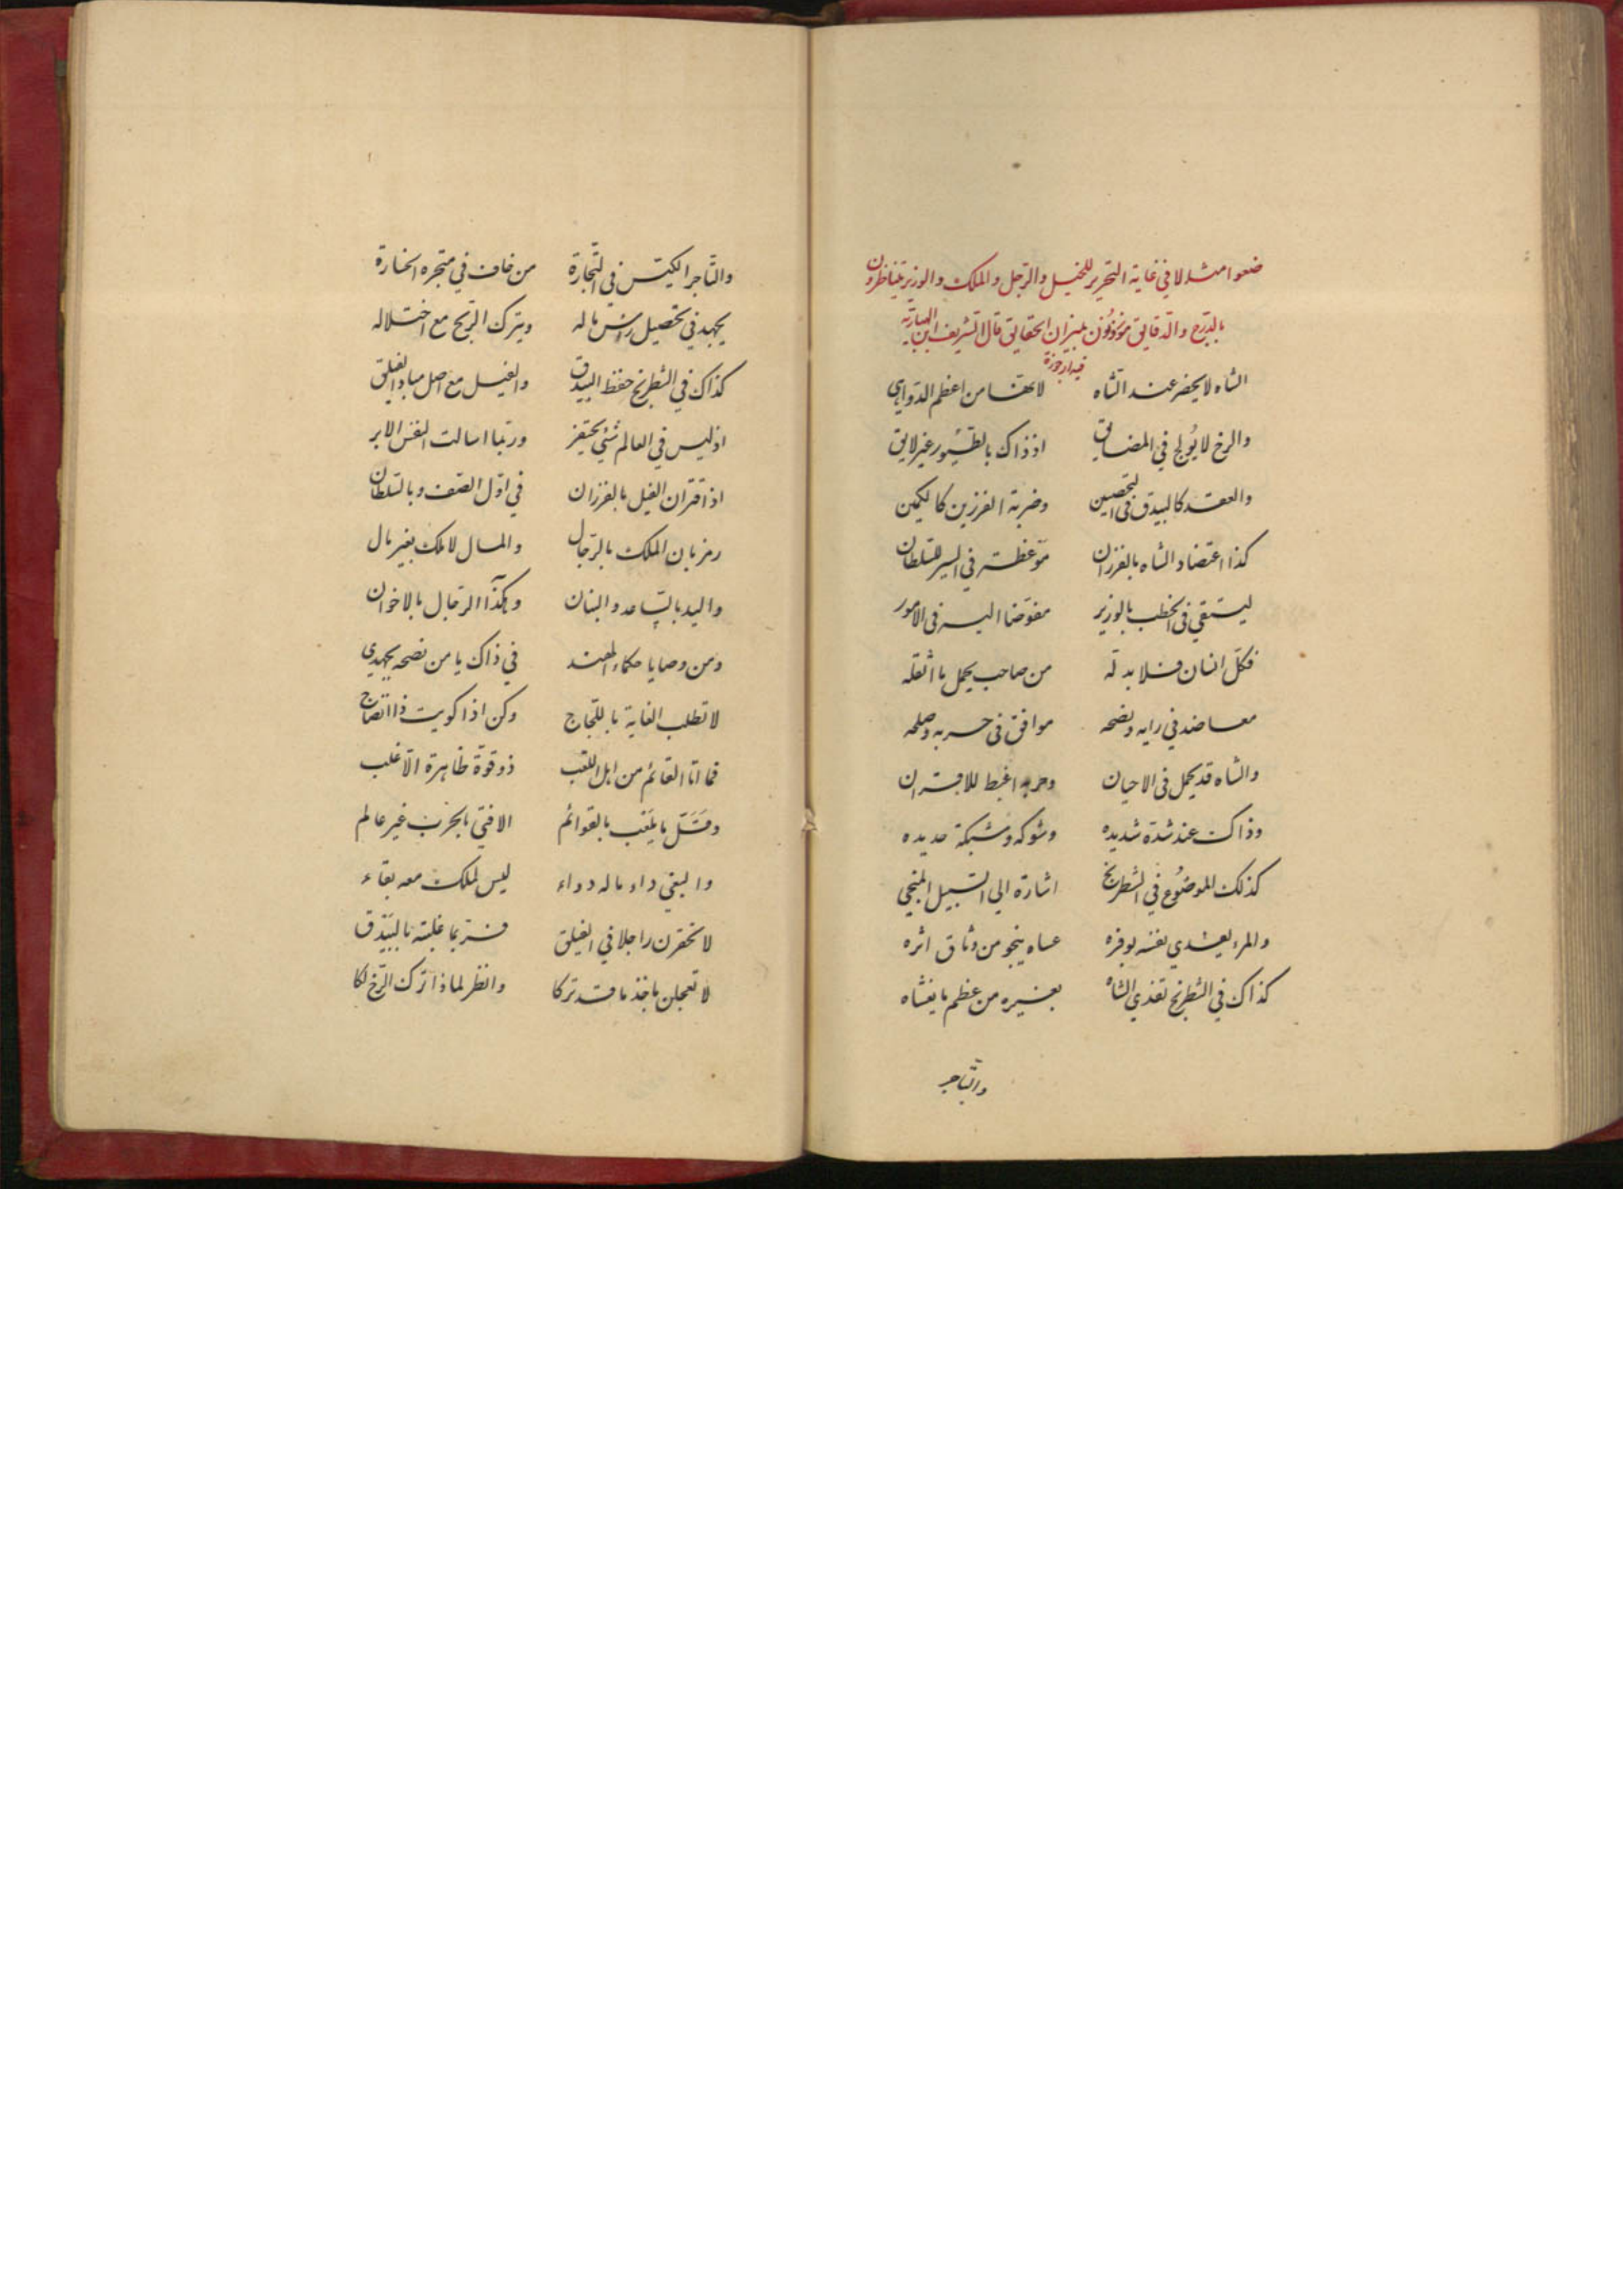 ضعوا مثلا في غاية التحرير للخيل والرجل والملك والوزير يتناظرون
بالدرج والدقايق موزون بميزان الحقايق قال الشريف ابن الهبارية
فيه ارجوزة
الشاه لا يحضر عند الشاه لانها من اعظم الدواهي
والرخ لا يولج في المضايق اذ ذاك بالطيور غير لايق
والعقد كالبيدق في التحصين وضربة الفرزين كالكمين
كذا اعتضاد الشاه بالفرزان موعظة في السير للسلطان
ليستقي في الخطب بالوزير مفوضا اليه في الامور
فكل انسان فلا بد له من صاحب يحمل ما اثقله
معاضد في رايه ونصحه موافق في حربه وصلحه
والشاه قد يحمل في الاحيان وحربه اغبط للاقتران
وذاك عند شدة شديده وشوكه وشبكة حديده
كذلك الموضوع في الشطرنج اشارة الى السبيل المنجي
والمرء يفتدي نفسه بوفره عساه ينجو من وثاق اثره
كذاك في الشطرنج تفدي الشاه بغيره من عظم ما يغشاه
والتاجر
والتاجر الكيس في التجارة من خاف في متجره الخسارة
يجهد في تحصيل راس ماله ويترك الربح مع اختلاله
كذاك في الشطرنج حفظ البيدق والفيل مع اصل مبادا الفيلق
اذ ليس في العالم شئ يحتقر وربما اسالت النفس الابر
اذ اقتران الفيل بالفرزان في اول الصف وبالسلطان
رمز بان الملك بالرجال والمال لا ملك بغير مال
واليد بالساعد والبنان وهكذا الرجال بالاخوان
ومن وصايا حكماء الهند في ذاك يا من نصحه يجهدي
لا تطلب الغاية باللجاج وكن اذا كويت ذا انضاج
فما انا القائم من اهل اللعب ذو قوة ظاهرة الا غلب
وقل ما يلعب بالقوائم الا فتى بالحرب غير عالم
والبغي داء ما له دواء ليس لملك معه بقاء
لا تحقرن راجلا في الفيلق فربما غلبته بالبيدق
لا تعجلن باخذ ما قد تركا وانظر لماذا ترك الرخ لكا